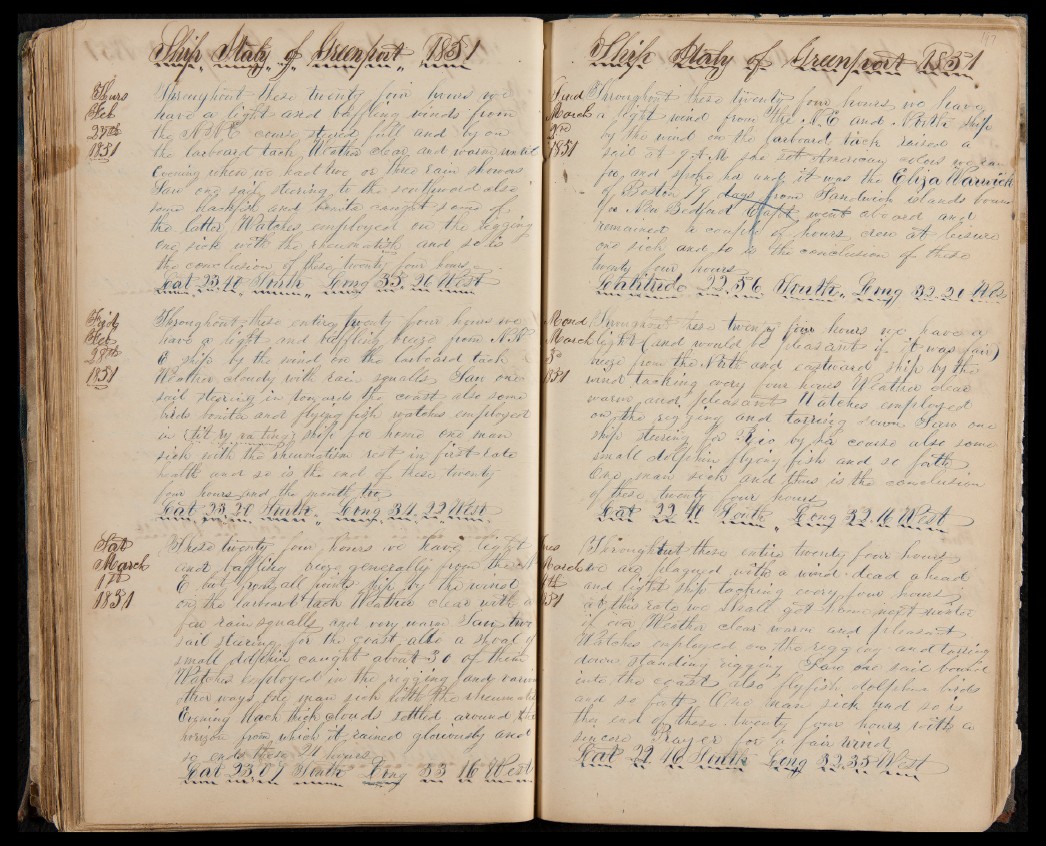 Ship Italy of Greenport 1851
Thurs
Feb
27th
1851
Throughout these twenty four hours we
have a light and baffling winds from
the N N E course steered full and by on
the larboard tack Weather clear and warm until
Evening when we had two or three rain showers
Saw one sail steering to the southward also
some blackfish and bonita caught some of
the latter Watches employed on the rigging
One sick with the rheumatism and so is
the conclusion of these twenty four hours
Lat 23.40 South Long 33.26 West
Frid
Feb
28th
1851
Throughout these entire twenty four hours we
have a light and baffling breeze from N N
E ship by the wind on the larboard tack
Weather cloudy with rain squalls Saw one
sail steering in towards the coast also some
birds bonita and flying fish watches employed
in fitting ship for home One man
sick with the rheumatism rest in first rate
health and so is the end of these twenty
four hours and the month too
Lat 23.20 South Long 34.22 West
Sat
March
1st
1851
These twenty four hours we have light
and baffling breeze generally from the N
E but from all points ship by the wind
on the larboard tack Weather clear with a
few rain squalls and very warm Saw two
sail steering for the coast also a shoal of
small dolphin caught about 30 of them
Watches employed in the rigging and various
other ways One man sick with the rheumatis
Evening black thick clouds settled around the
horizon from which it rained gloriously and
so ends these 24 hours
Lat 23.01 South Long 33 16 West
Ship Italy of Greenport 1851
147
Sund
March
2nd
1851
Throughout these twenty four hours we have
a light wind from the N.E and North ship
by the wind on the larboard tack raised a
sail at 9 A.M she set American colors we ran
for and spoke her and it was the Eliza Warwick
of Boston 79 days from Sandwich islands bound
for New Bedford Capt went aboard and
remained a couple of hours crew at leisure
one sick and so is the conclusion of these
twenty four hours
Latitude 22.56 South Long 32.21 Wes
Mond
March
3d
1851
Throughout these twenty four hours we have a
light (and would be pleasant if it was fair)
breeze from the North and eastward ship by the
wind tacking every four hours Weather clear
warm and pleasant Watches employed
on the rigging and tarring down Saw one
ship steering for Rio by her course also some
small dolphin flying fish and so forth
One man sick and thus is the conclusion
of these twenty four hours
Lat 22.40 South Long 32.16 West
ues
March
4th
851
Throughout these entire twenty four hours
we are plagued with a wind dead ahead
and light ship tacking every four hours
at this rate we shall get home next winter
if ever Weather clear warm and pleasant
Watches employed on the rigging and tarring
down standing rigging Saw one sail bound
into the coast also flyfish dolphins birds
and so forth One man sick and so is
the end of these twenty four hours with a
sincere Prayer for a fair wind
Lat 22 16 South Long 32.35 West